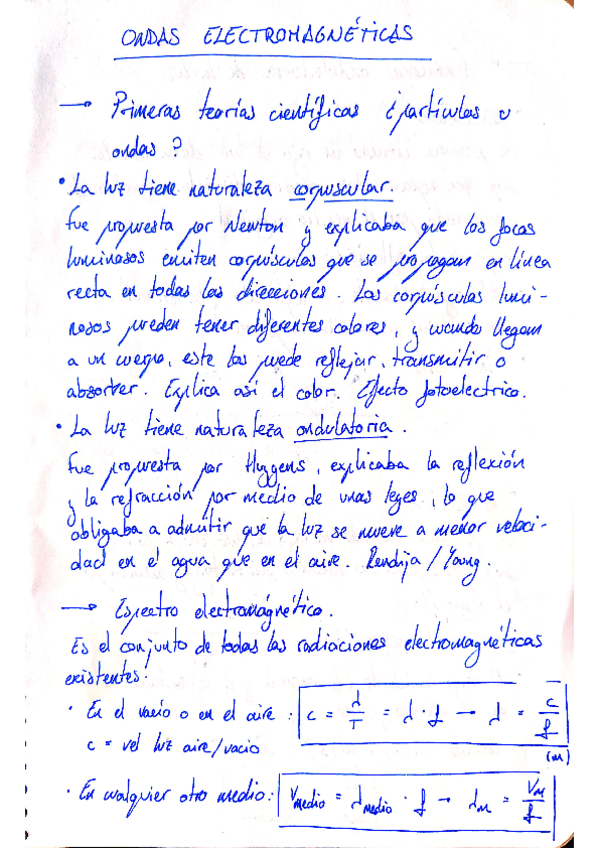 ONDAS ELECTROMAGNÉTICAS
→ Primeras teorías científicas ¿partículas u
ondas?
• La luz tiene naturaleza corpuscular.
Fue propuesta por Newton y explicaba que los focos
luminosos emiten corpúsculos que se propagan en línea
recta en todas las direcciones. Los corpúsculos lumi-
nosos pueden tener diferentes colores, y cuando llegan
a un cuerpo, este los puede reflejar, transmitir o
absorber. Explica así el color. Efecto fotoelectrico.
• La luz tiene naturaleza ondulatoria.
Fue propuesta por Huygens, explicaba la reflexión
y la refracción por medio de unas leyes, lo que
obligaba a admitir que la luz se mueve a menor veloci-
dad en el agua que en el aire. Rendija / Young.
→ Espectro electromagnético.
Es el conjunto de todas las radiaciones electromagnéticas
existentes:
· En el vacío o en el aire : c = λ/T = λ · f → λ = c/f
c = vel luz aire/vacio (m)
· En cualquier otro medio: Vmedio = λmedio · f → λm = Vm/f